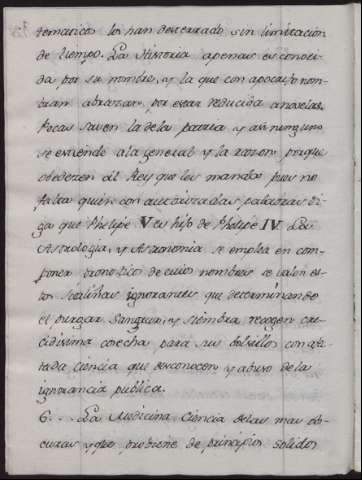 tematicos los han desterrado sin limitacion
de tiempo. La Historia apenas es conoci-
da por su nombre, y la que con apocrifo nom-
bran abrazan, por estar reducida a novelas.
Pocas saven la dela patria y asi ninguno
se estiende ala general y la razon porque
obedecen al Rey que los manda pues no
falta quien con autorizadas palabras di-
ga que Phelipe V es hijo de Phelipe IV. La
Astrologia, y Astronomia se emplea en com-
poner pronostico de cuios nombres se valen es-
tos ignorantes que determinando
el purgar, Sangrar, y siembra recogen cre-
cidisima cosecha para sus bolsillos con afec-
tada ciencia que desconocen y abuso de la
ignorancia publica.
6. . . La Medicina Ciencia delas mas obs-
curas y que prediene de principios solidos